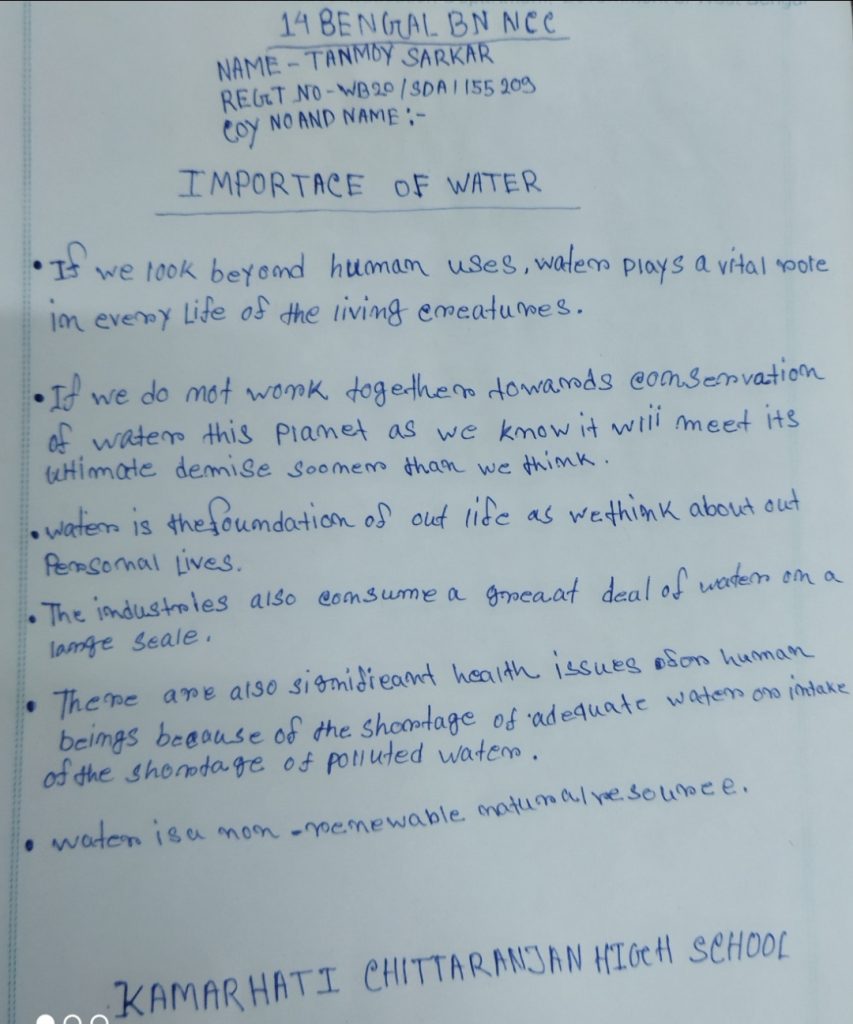 14 BENGAL BN NCC
NAME - TANMOY SARKAR
REGT NO - WB20/SDA1155209
COY NO AND NAME :-
IMPORTACE OF WATER
• If we look beyond human uses, water plays a vital role
in every Life of the living creatures.
• If we do not work together towards conservation
of water this planet as we know it will meet its
ultimate demise sooner than we think.
• water is the foundation of out life as we think about out
Personal Lives.
• The industries also consume a greaat deal of water on a
large scale.
• There are also significant health issues for human
beings because of the shortage of adequate water or intake
of the shortage of polluted water.
• water is a non-renewable natural resource.
KAMARHATI CHITTARANJAN HIGH SCHOOL